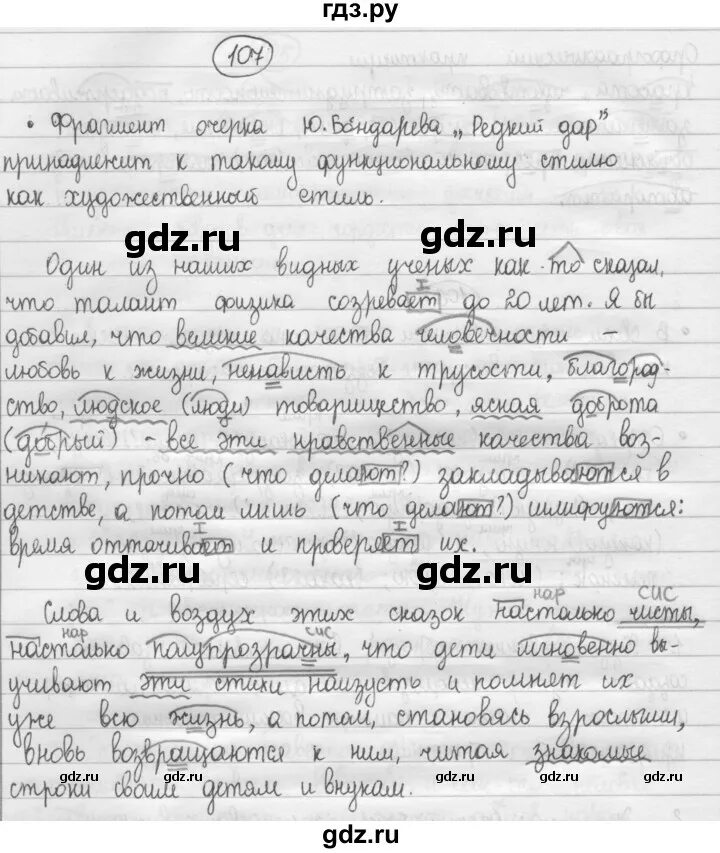 гдз.ру
107
• Фрагмент очерка Ю. Бондарева „Редкий дар"
принадлежит к такому функциональному стилю
как художественный стиль.
gdz.ru gdz.ru
Один из наших видных ученых как-то сказал,
что талант физика созревает до 20 лет. Я бы
добавил, что великие качества человечности –
любовь к жизни, ненависть к трусости, благород-
ство, людское (люди) товарищество, ясная доброта
(добрый) – все эти нравственные качества воз-
никают, прочно (что делают?) закладываются в
детстве, а потом лишь (что делают?) шлифуются:
время оттачивает и проверяет их.
gdz.ru gdz.ru
нар сис
Слова и воздух этих сказок настолько чисты,
нар сис
настолько полупрозрачны, что дети мгновенно вы-
учивают эти стихи наизусть и помнят их
уже всю жизнь, а потом, становясь взрослыми,
вновь возвращаются к ним, читая знакомые
gdz.ru gdz.ru gdz.ru gdz.ru
строки своим детям и внукам.
gdz.ru